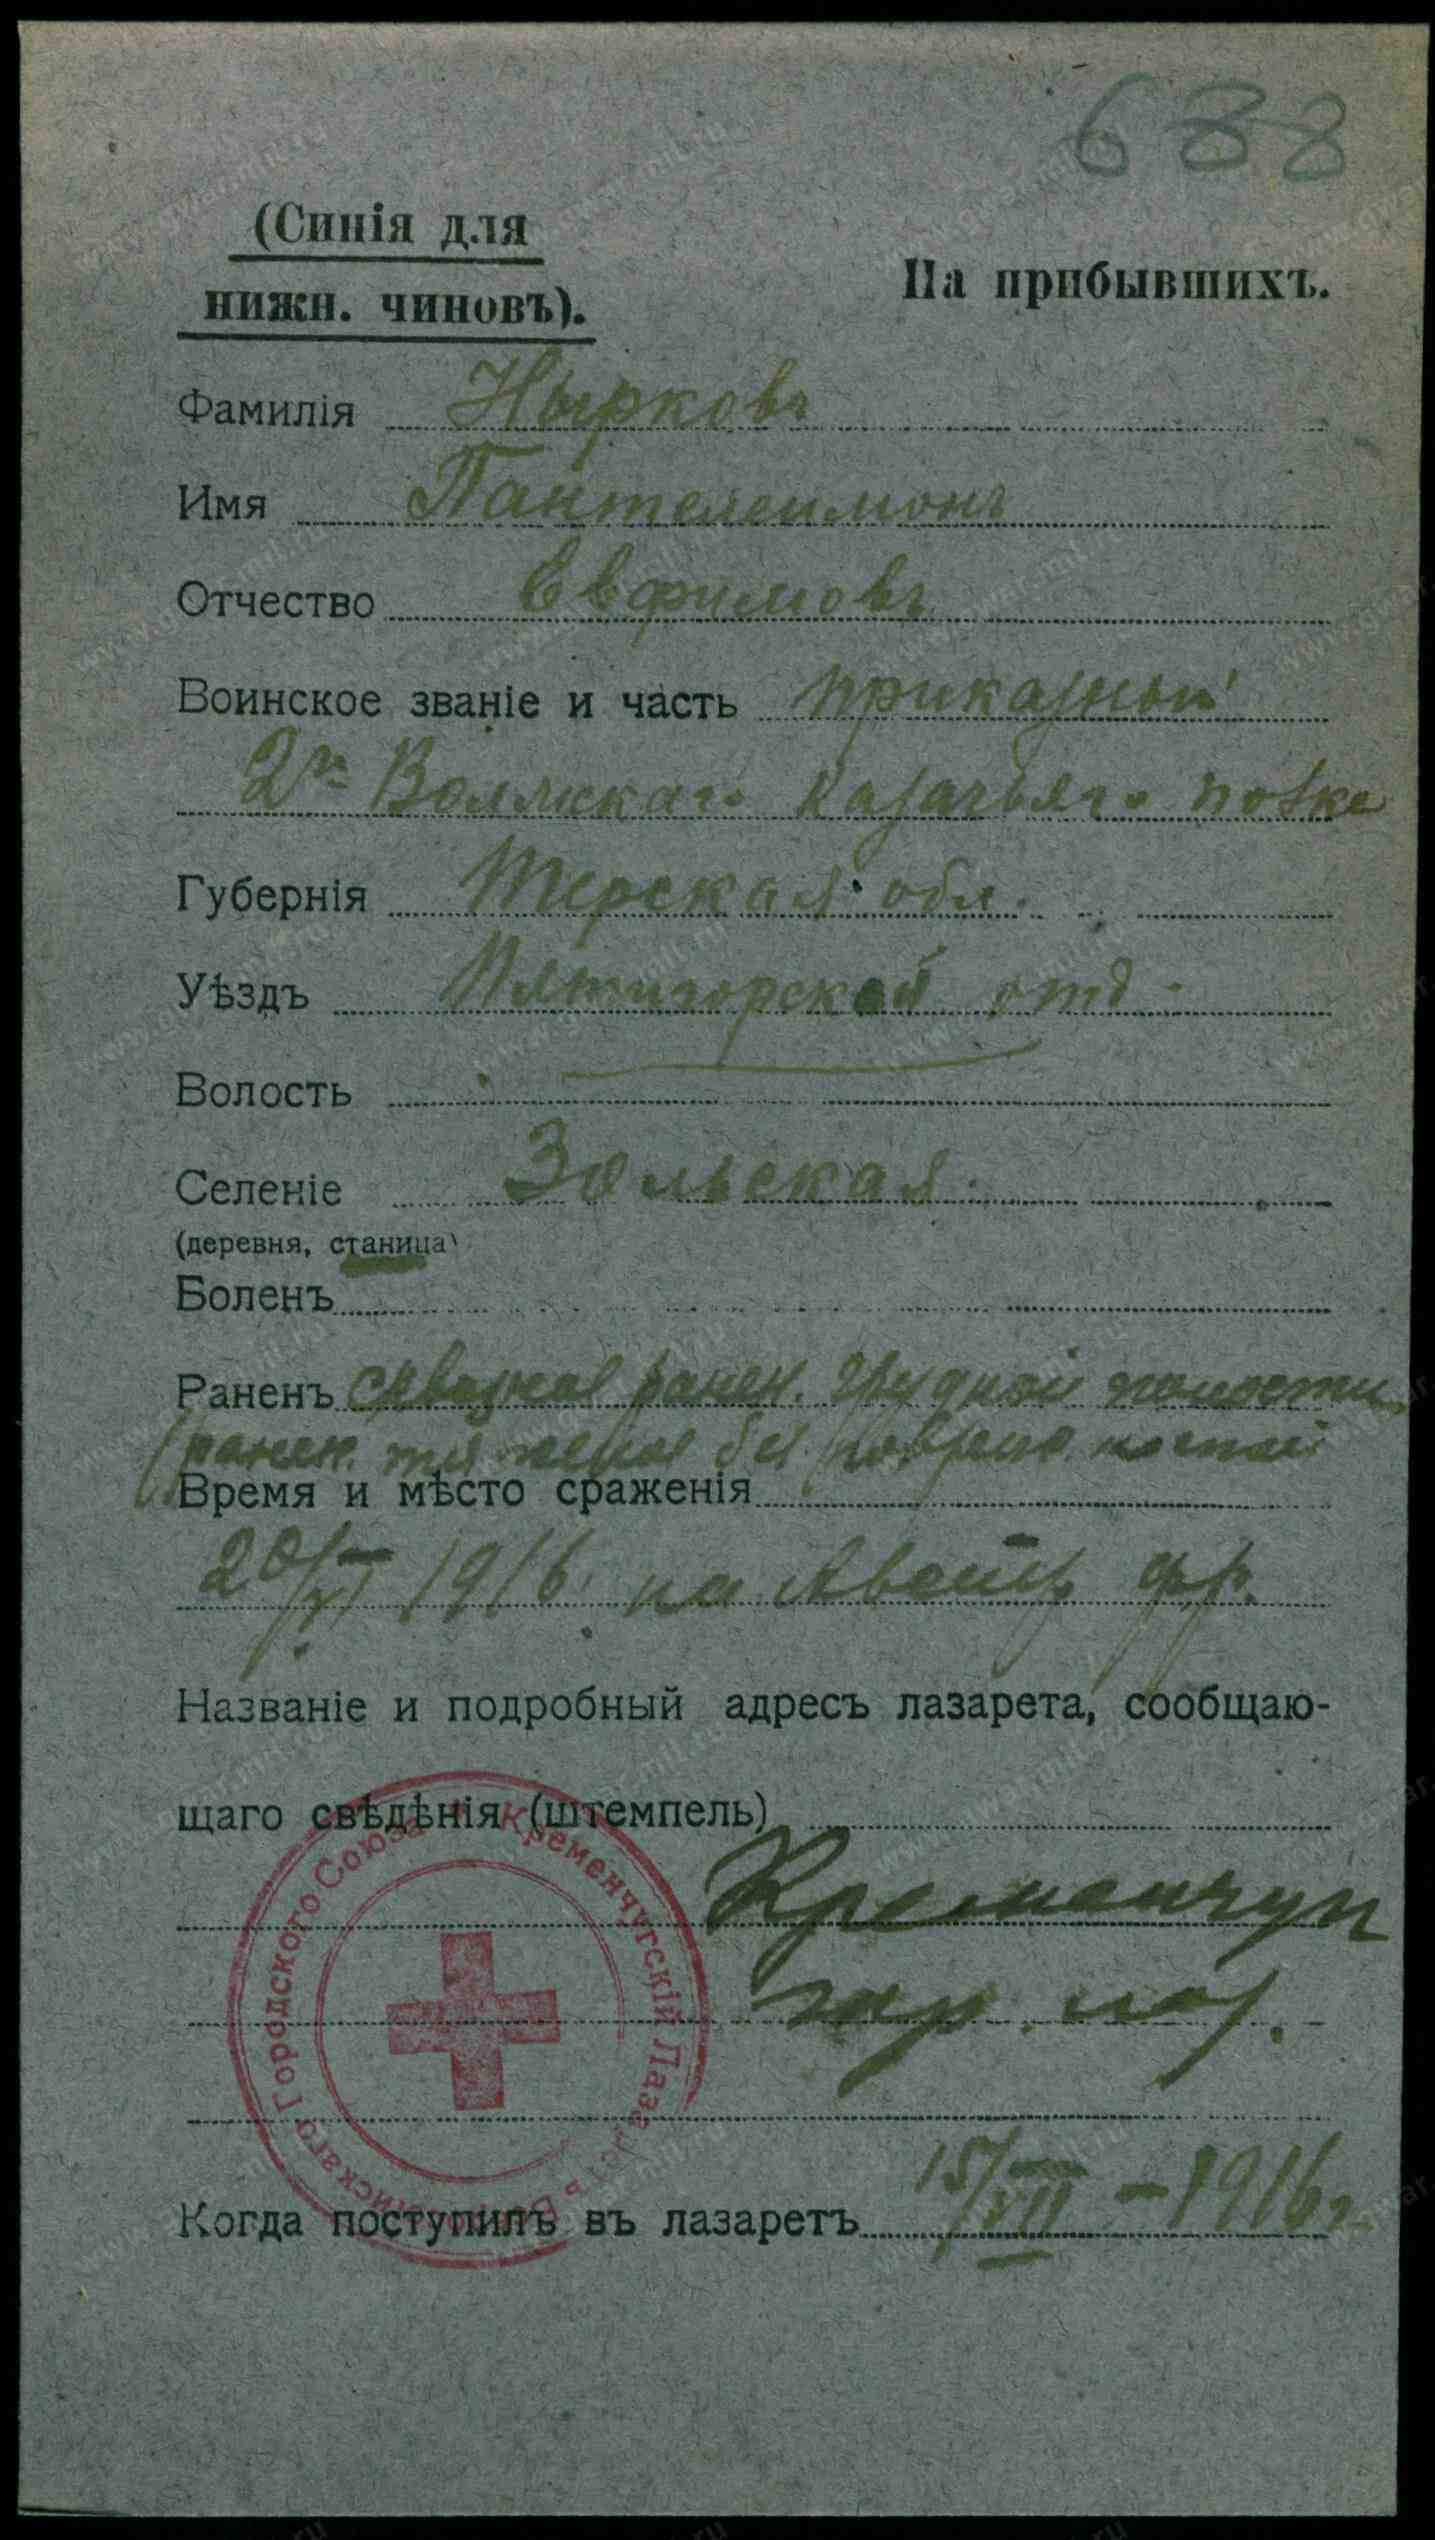 688
(Синія для
нижн. чиновъ).
На прибывшихъ.
Фамилія Нырковъ
Имя Пантелеимонъ
Отчество Евфимовъ
Воинское званіе и часть приказный
2го Волжскаго казачьяго полка
Губернія Терская обл.
Уѣздъ Пятигорской отд.
Волость
Селеніе Зольская.
(деревня, станица)
Боленъ
Раненъ сквозное ранен. грудной полости
(ранен. тяжелое без поврежд. костей
Время и мѣсто сраженія
1916 на Австр. фр.
Названіе и подробный адресъ лазарета, сообщаю-
щаго свѣдѣнія (штемпель)
Кременчугскій Лазаретъ Городского Союза
Кременчуг
лаз.
Когда поступилъ въ лазаретъ 15/VII – 1916г.
www.gwar.mil.ru